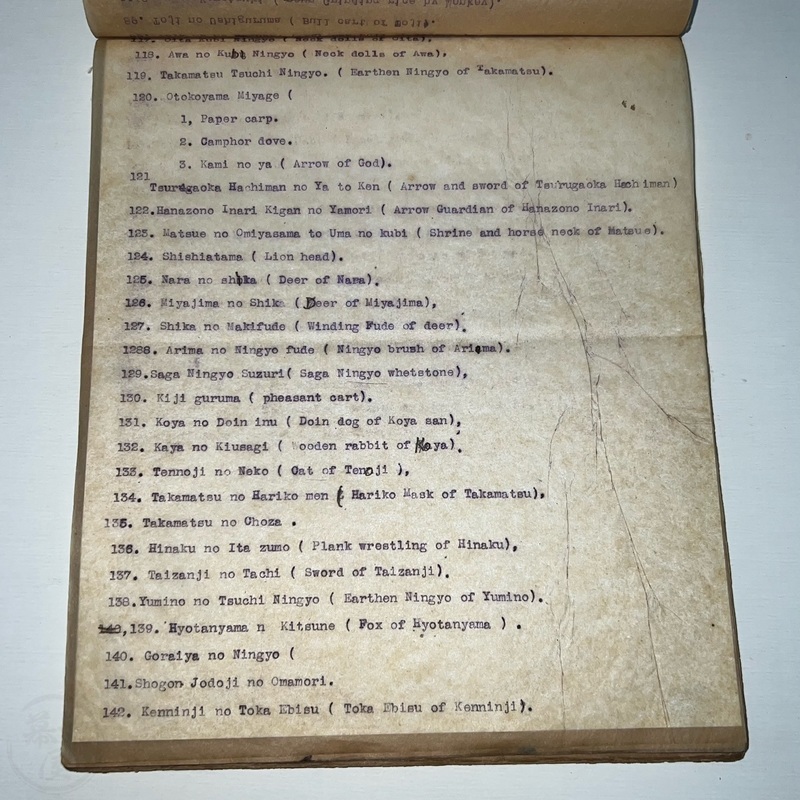 118. Awa no Kubi Ningyo ( Neck dolls of Awa),
119. Takamatsu Tsuchi Ningyo. ( Earthen Ningyo of Takamatsu).
120. Otokoyama Miyage (
1, Paper carp.
2. Camphor dove.
3. Kami no ya ( Arrow of God).
121
Tsurugaoka Hachiman no Ya to Ken ( Arrow and sword of Tsurugaoka Hachiman)
122.Hanazono Inari Kigan no Yamori ( Arrow Guardian of Hanazono Inari).
123. Matsue no Omiyasama to Uma no kubi ( Shrine and horse neck of Matsue).
124. Shishiatama ( Lion head).
125. Nara no shika ( Deer of Nara).
126. Miyajima no Shika ( Deer of Miyajima),
127. Shika no Makifude ( Winding Fude of deer).
1288. Arima no Ningyo fude ( Ningyo brush of Arima).
129.Saga Ningyo Suzuri( Saga Ningyo whetstone),
130. Kiji guruma ( pheasant cart).
131. Koya no Doin inu ( Doin dog of Koya san),
132. Kaya no Kiusagi ( Wooden rabbit of Kaya).
133. Tennoji no Neko ( Cat of Tenoji ),
134. Takamatsu no Hariko men ( Hariko Mask of Takamatsu),
135. Takamatsu no Choza .
136. Hinaku no Ita zumo ( Plank wrestling of Hinaku),
137. Taizanji no Tachi ( Sword of Taizanji).
138.Yumino no Tsuchi Ningyo ( Earthen Ningyo of Yumino).
142,139. Hyotanyama n Kitsune ( Fox of Hyotanyama ) .
140. Goraiya no Ningyo (
141.Shogon Jodoji no Omamori.
142. Kenninji no Toka Ebisu ( Toka Ebisu of Kenninji).